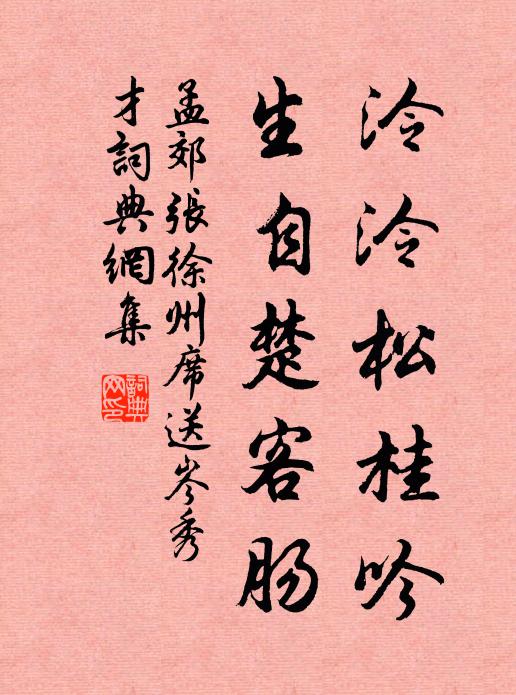 泠泠松桂吟
生自楚客腸
孟郊張徐州席送岑秀
才詞典網集
詞典網印